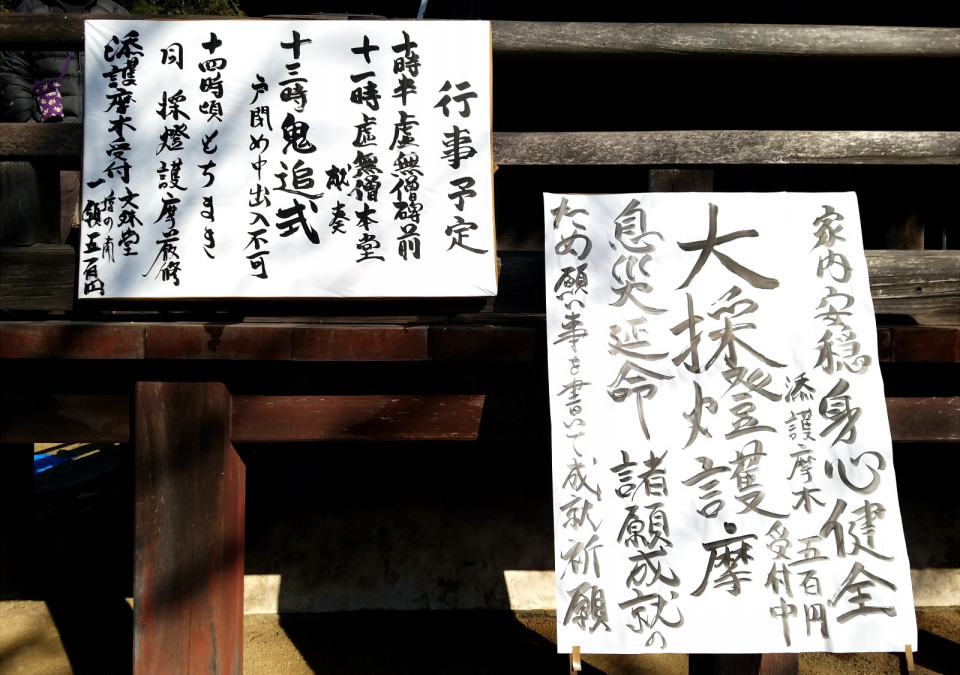 行事予定
十時半 虚無僧碑前
十一時 虚無僧本堂
献奏
十三時 鬼追式
戸閉め中出入不可
十四時頃 もちまき
同 採燈護摩厳修
添護摩木受付 文殊堂
一願五百円
家内安穏 身心健全
添護摩木 五百円
受付中
大採燈護摩
息災延命 諸願成就の
ため願い事を書いて成就祈願